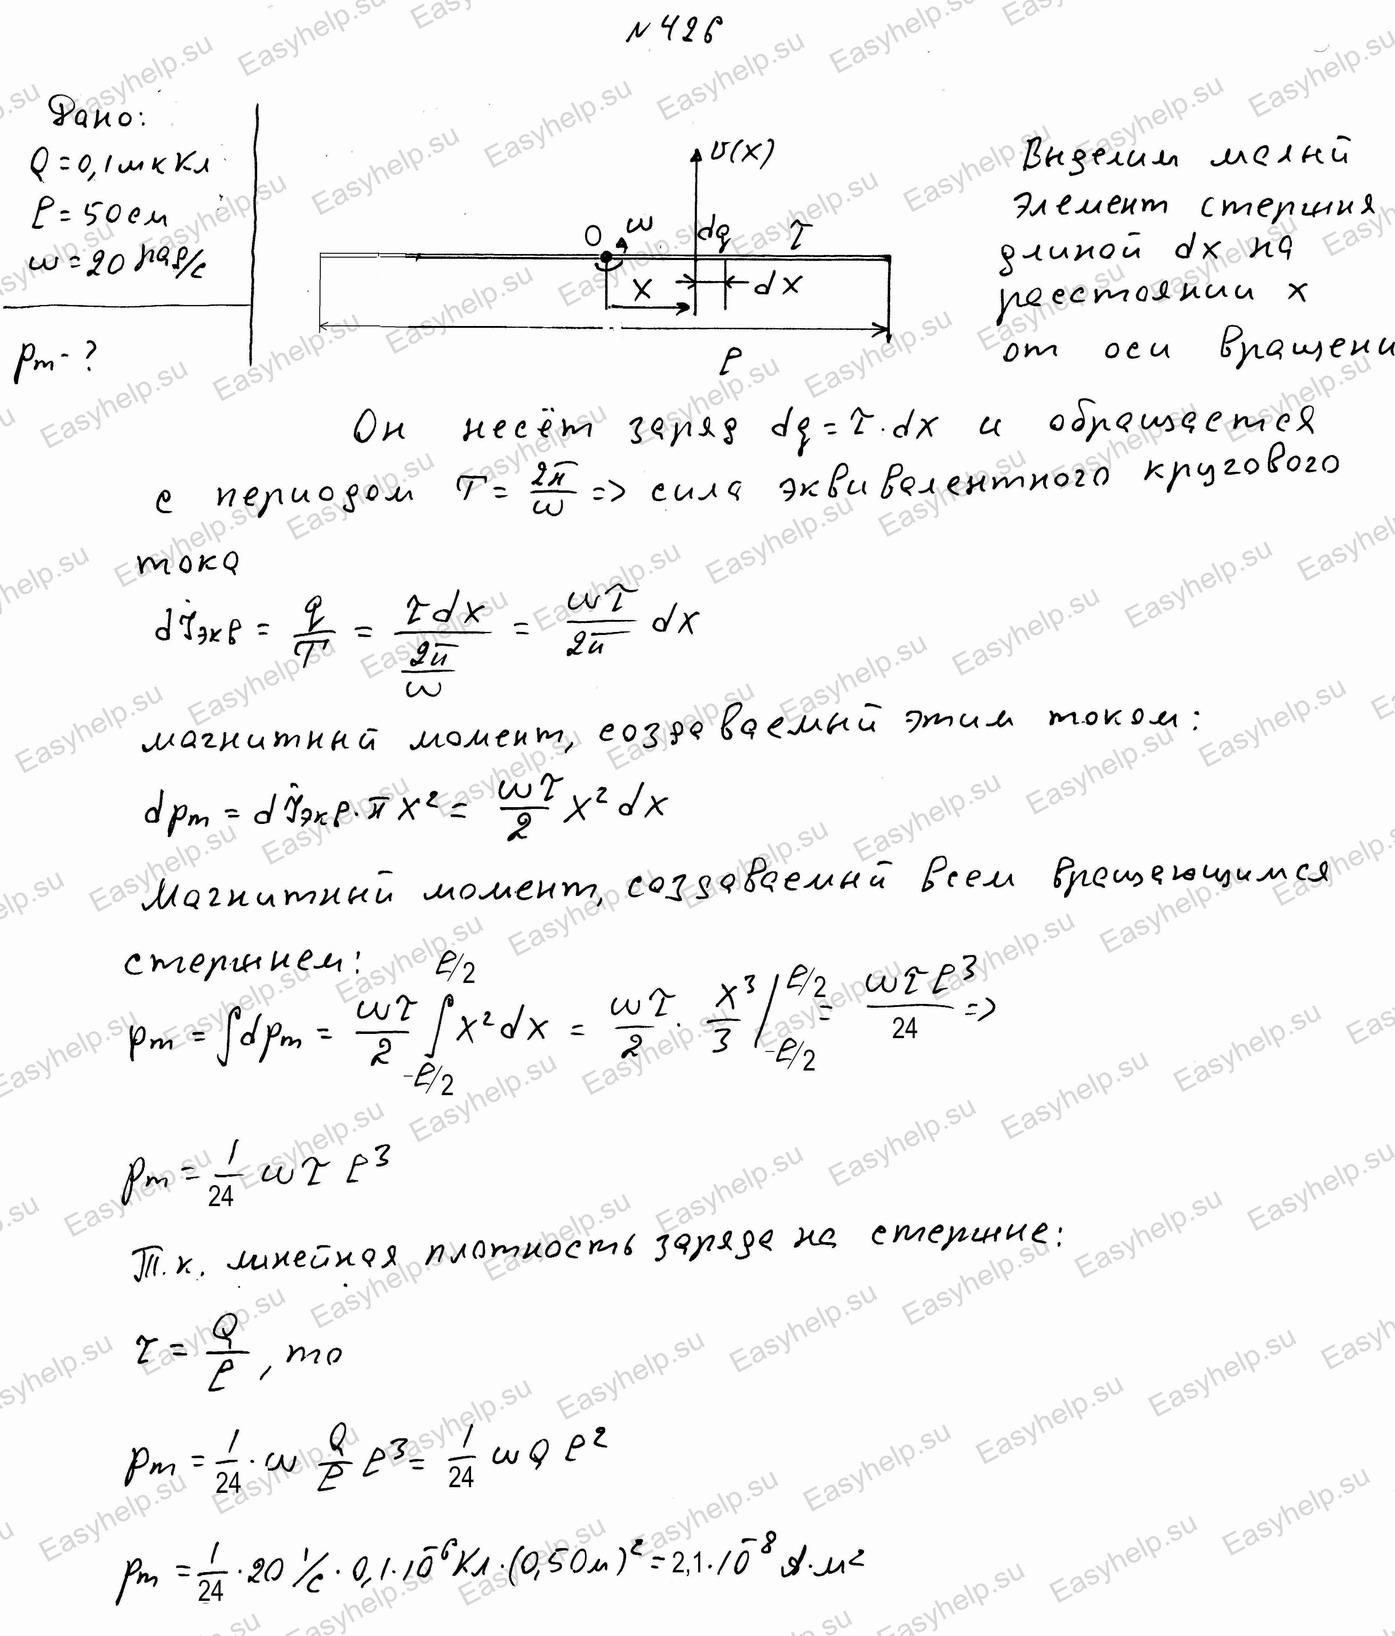 №426
Дано:
Q = 0,1 мкКл
ℓ = 50 см
ω = 20 рад/с
pm - ?
υ(x)
O ω dq τ
x dx
ℓ
Выделим малый
элемент стержня
длиной dx на
расстоянии x
от оси вращени
Он несёт заряд dq = τ·dx и обращается
с периодом T = 2π/ω => сила эквивалентного кругового
тока
dIэкв = q/T = τdx/(2π/ω) = ωτ/2π dx
магнитный момент, создаваемый этим током:
dpm = dIэкв·πx² = ωτ/2 x² dx
Магнитный момент, создаваемый всем вращающимся
стержнем:
pm = ∫dpm = ωτ/2 ∫_{-ℓ/2}^{ℓ/2} x² dx = ωτ/2 · x³/3 |_{-ℓ/2}^{ℓ/2} = ωτℓ³/24 =>
pm = 1/24 ωτℓ³
Т.к. линейная плотность заряда на стержне:
τ = Q/ℓ, то
pm = 1/24 · ω Q/ℓ ℓ³ = 1/24 ωQℓ²
pm = 1/24 · 20 1/с · 0,1·10⁻⁶ Кл·(0,50м)² = 2,1·10⁻⁸ А·м²
Easyhelp.su